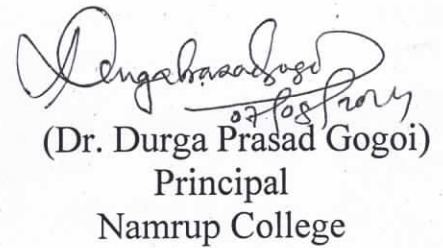 Durgaprasad Gogoi
(Dr. Durga Prasad Gogoi)
Principal
Namrup College